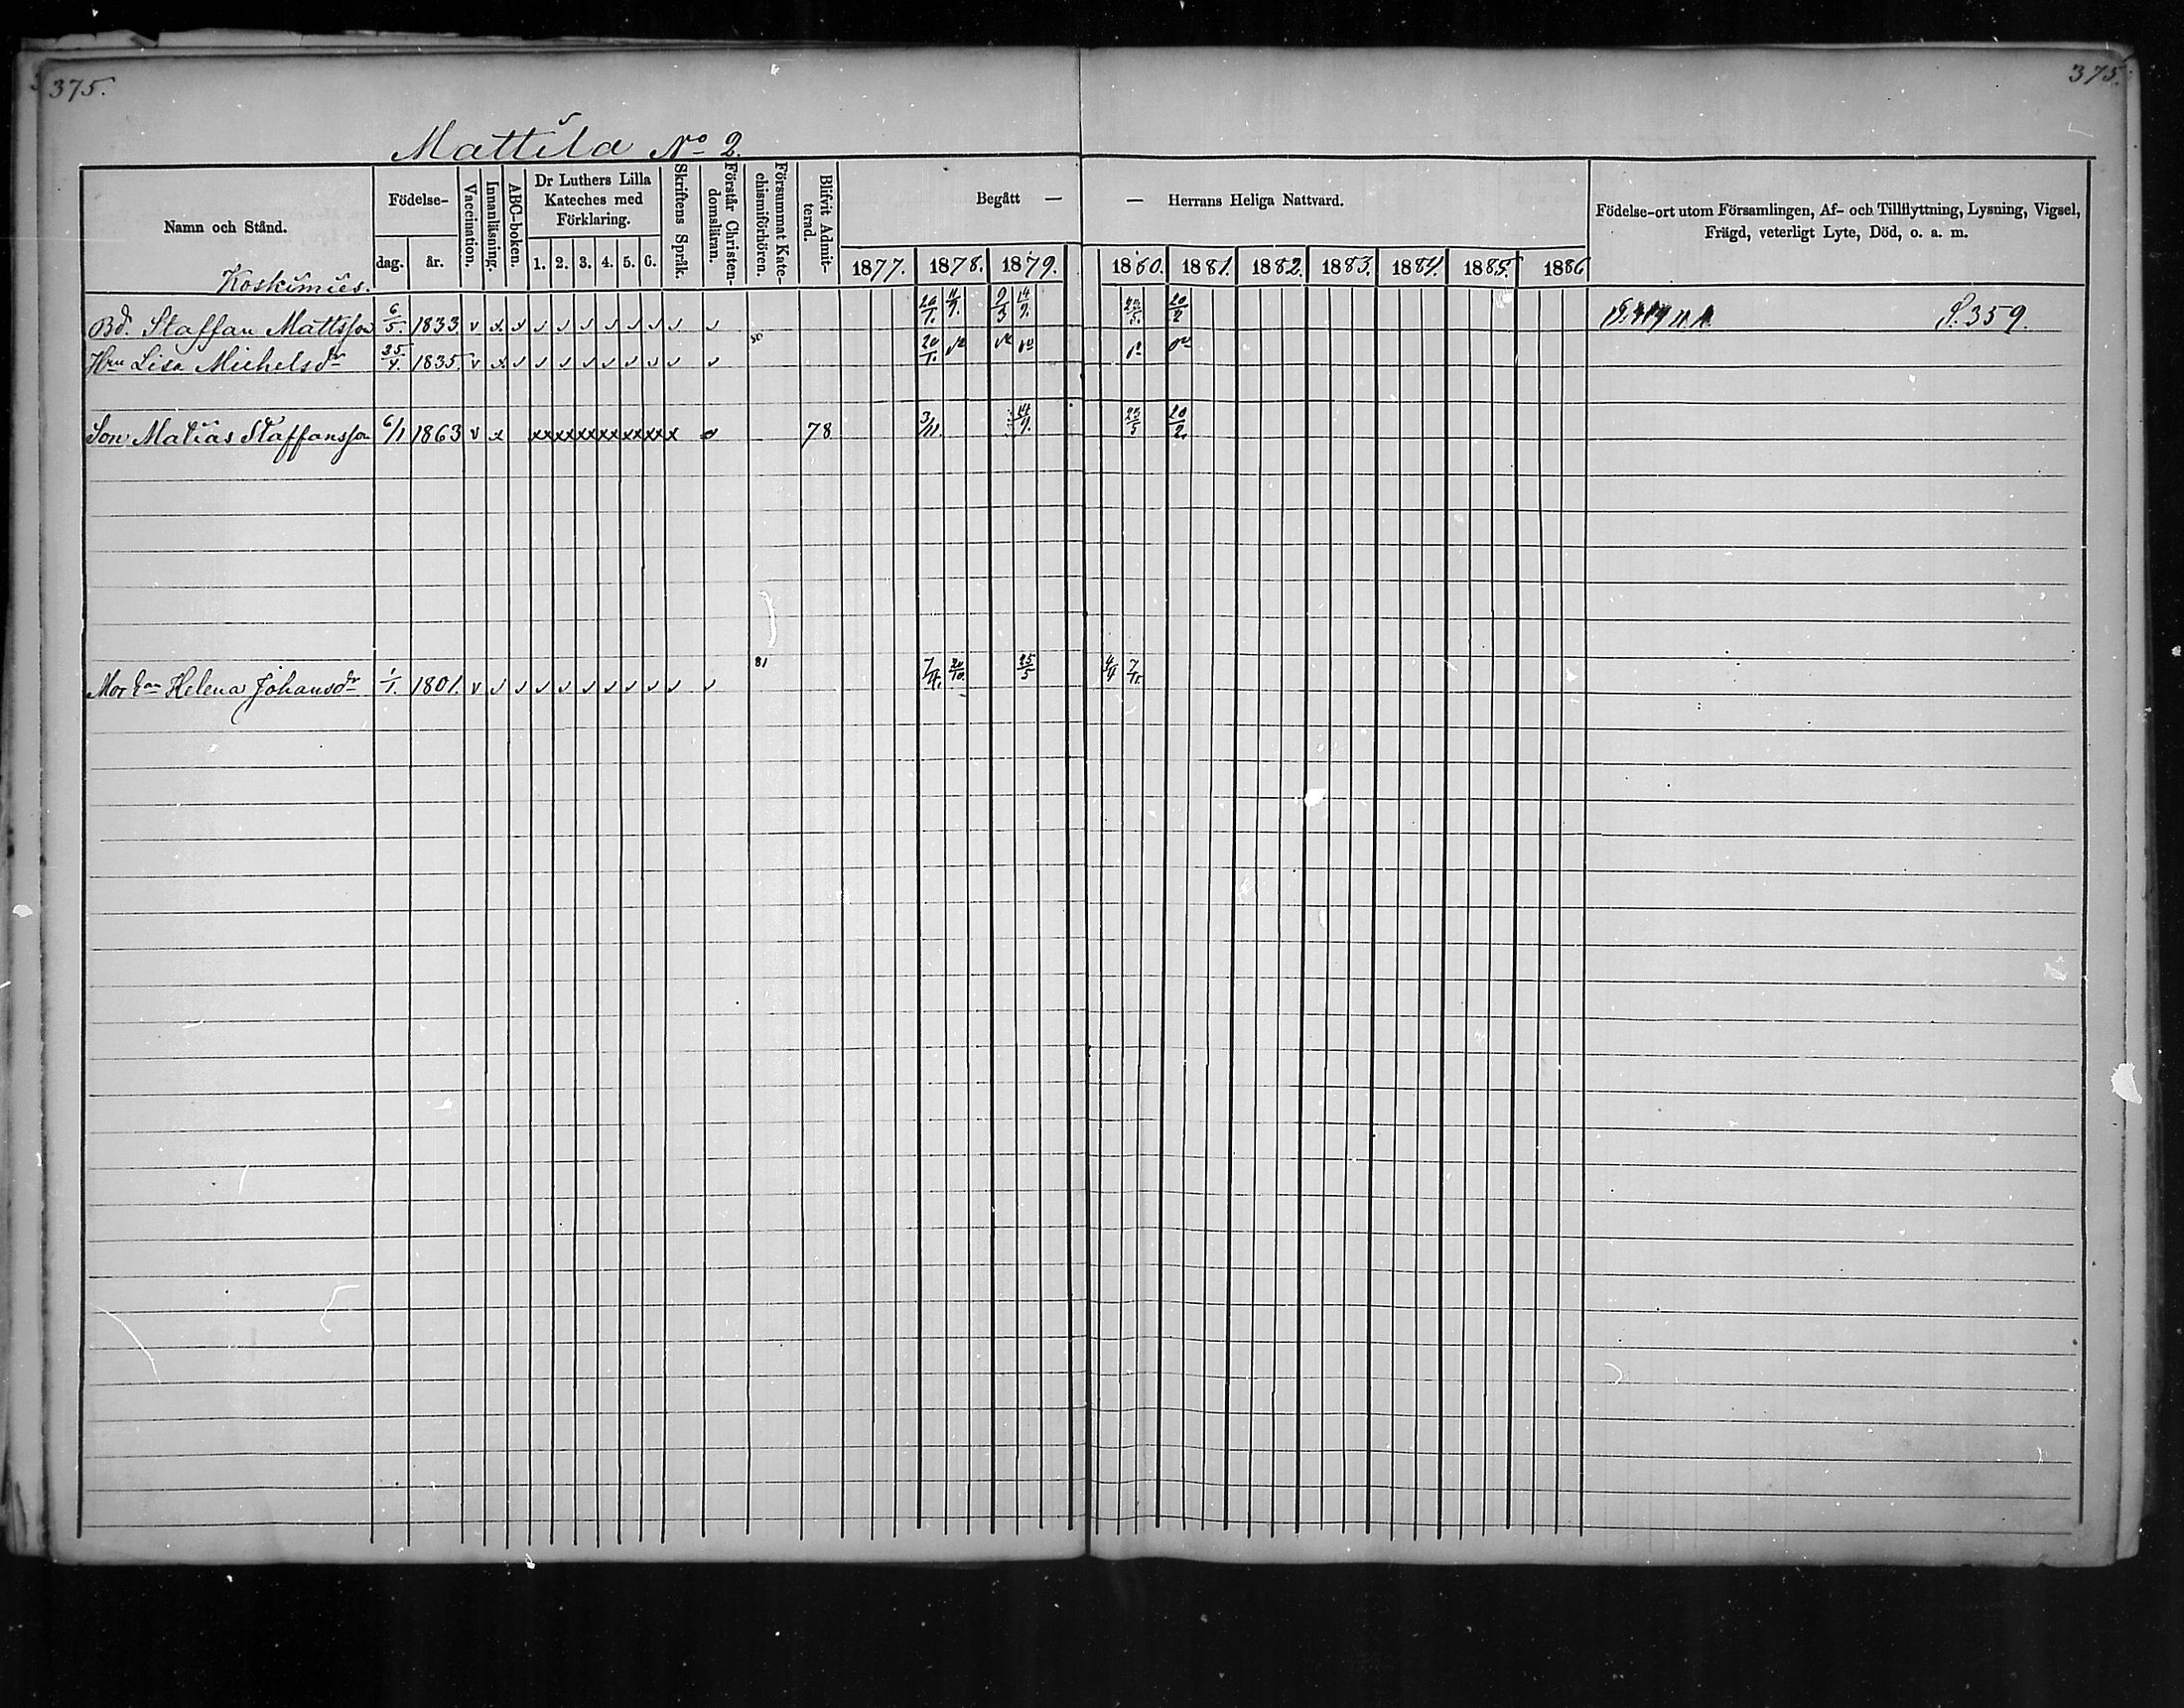 375.
375.
Mattila No 2.
Namn och Stånd.
Födelse-
dag.
år.
Vaccination.
Innanläsning.
ABC-boken.
Dr Luthers Lilla
Kateches med
Förklaring.
1. 2. 3. 4. 5. 6.
Skriftens Språk.
Förstår Christen-
domsläran.
Försummat Kate-
chismiförhören.
Blifvit Admit-
terad.
Begått —
— Herrans Heliga Nattvard.
1877. 1878. 1879. 1880. 1881. 1882. 1883. 1884. 1885. 1886
Födelse-ort utom Församlingen, Af- och Tillflyttning, Lysning, Vigsel,
Frägd, veterligt Lyte, Död, o. a. m.
Koskimies.
Bd. Staffan Mattsson 6/5. 1833 v x v v v v v v v v v 20/1. 9/3 14/9. 20/2 P. 359.
Hru Lisa Michelsdr 25/4. 1835. v x v v v v v v v v v 80 20/1.
Son Matias Staffansson 6/1 1863 v x xxxxxxxxxxxx x 78 3/11. 14/9. 20/2.
Mor Helena Johansdr 1/1. 1801. v v v v v v v v v v v 81 7/4. 20/10. 25/5 4/4 7/11.